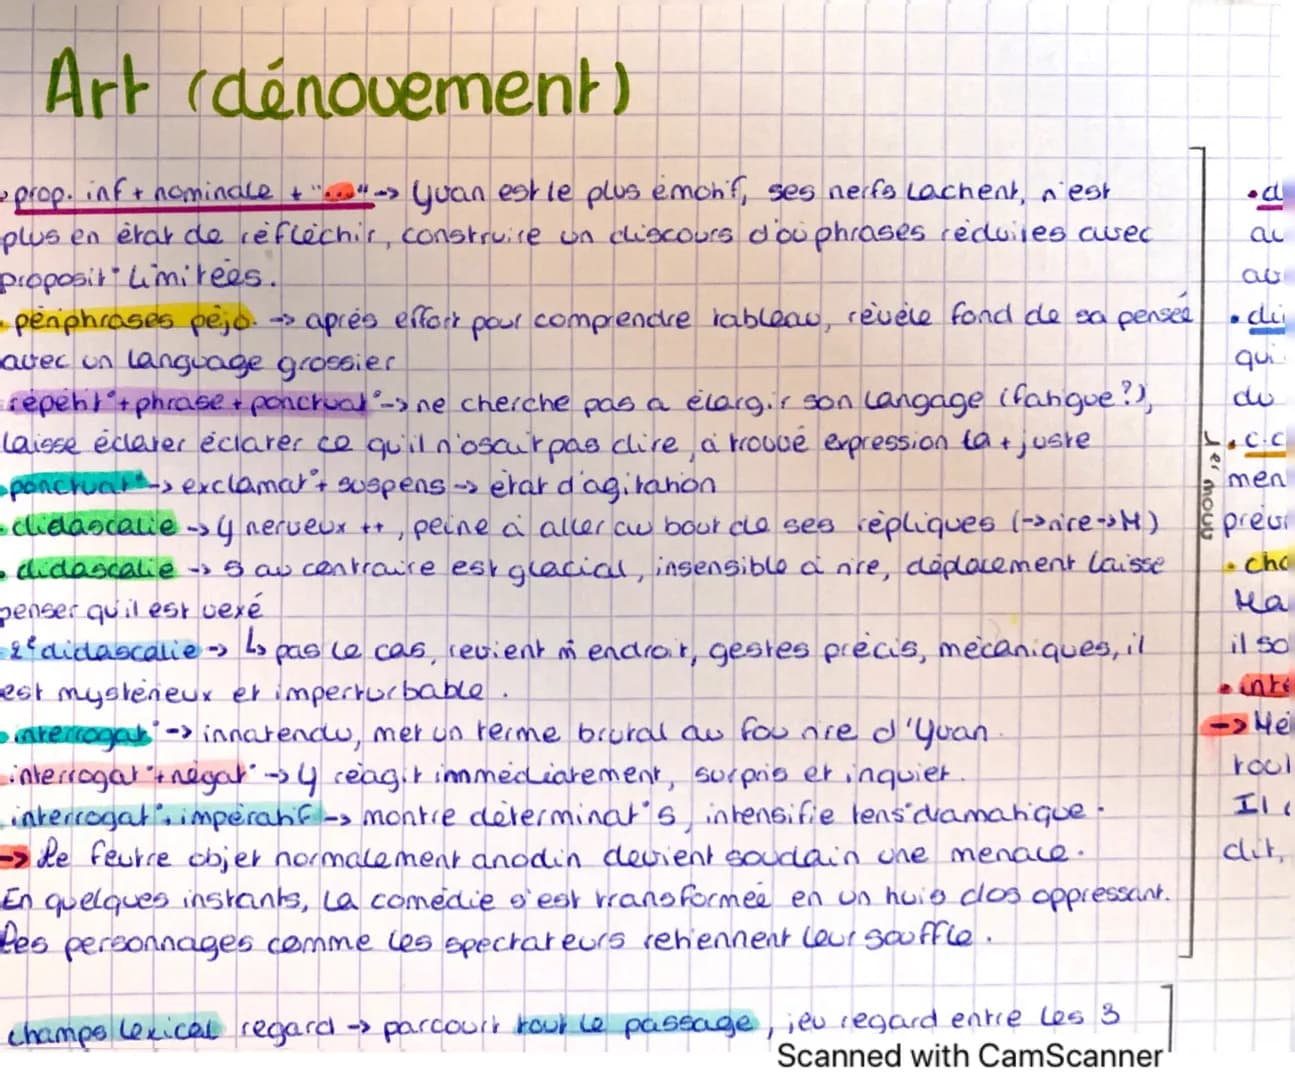 Art (dénouement)
prop. inf + nominale + "..." -> Yvan est le plus émotif, ses nerfs lachent, n'est
plus en état de réfléchir, construire un discours d'où phrases réduites avec
proposit° limitées.
périphrases péjo. -> après effort pour comprendre tableau, révèle fond de sa pensée
avec un language grossier
répétit° + phrase + ponctuat° -> ne cherche pas a élargir son langage (fatigue?),
laisse éclater éclater ce qu'il n'osait pas dire, a trouvé expression la + juste
ponctuat° -> exclamat° + suspens -> état d'agitation
didascalie -> Y nerveux ++, peine à aller au bout de ses répliques (-> rire -> M)
didascalie -> S au contraire est glacial, insensible à rire, déplacement laisse
penser qu'il est vexé
2e didascalie -> ↳ pas le cas, revient m̂ endroit, gestes précis, mécaniques, il
est mystérieux et imperturbable.
interrogat° -> innatendu, met un terme brutal au fou rire d'Yvan.
interrogat° + négat° -> Y réagit immédiatement, surpris et inquiet.
interrogat° + impératif -> montre déterminat° S, intensifie tens° dramatique.
-> Le feutre objet normalement anodin devient soudain une menace.
En quelques instants, la comédie s'est transformée en un huis clos oppressant.
Les personnages comme les spectateurs retiennent leur souffle.
champs lexical regard -> parcourt tout le passage, jeu regard entre les 3
1er mouv
au
au
qui
du
c.c
men
prév
Ma
il so
-> Mé
Il
dit,
Scanned with CamScanner